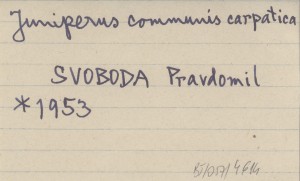 Juniperus communis carpatica
SVOBODA Pravdomil
*1953